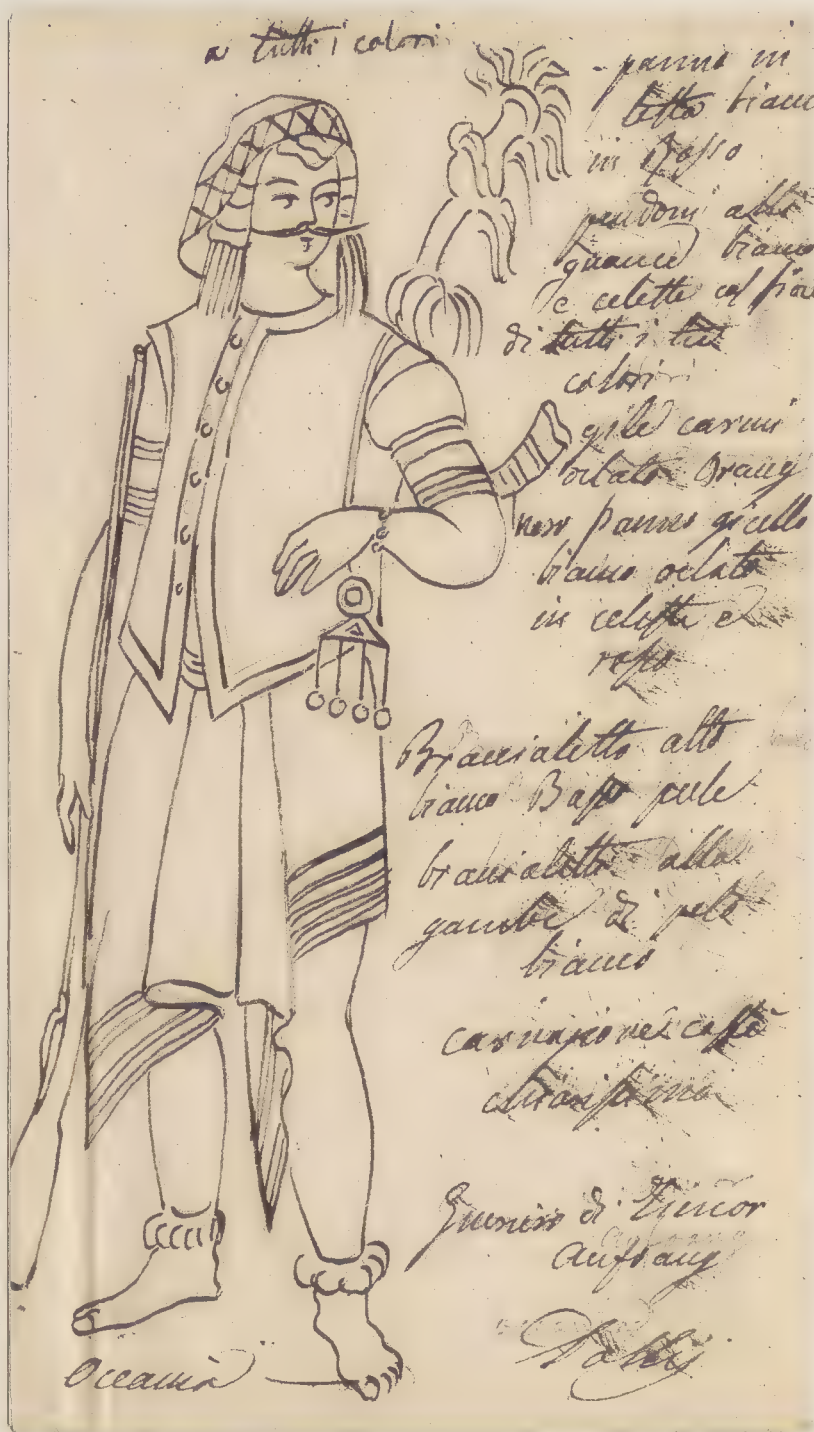 a tutti i colori
- panno in
testa bianc
in Rosso
pendoni alle
guance bianco
e celette col fior
di tutti i
colori
gilè carmi
orlato Orang
panno gicello
bianco orlato
in celeste e
rosso
Braccialetto alto
bianco Basso pele
braccialetto alla
gambe di pelo
bianco
carnagione caffè
chiarissima
Guerriero di Timor
Aufoang
Oceania